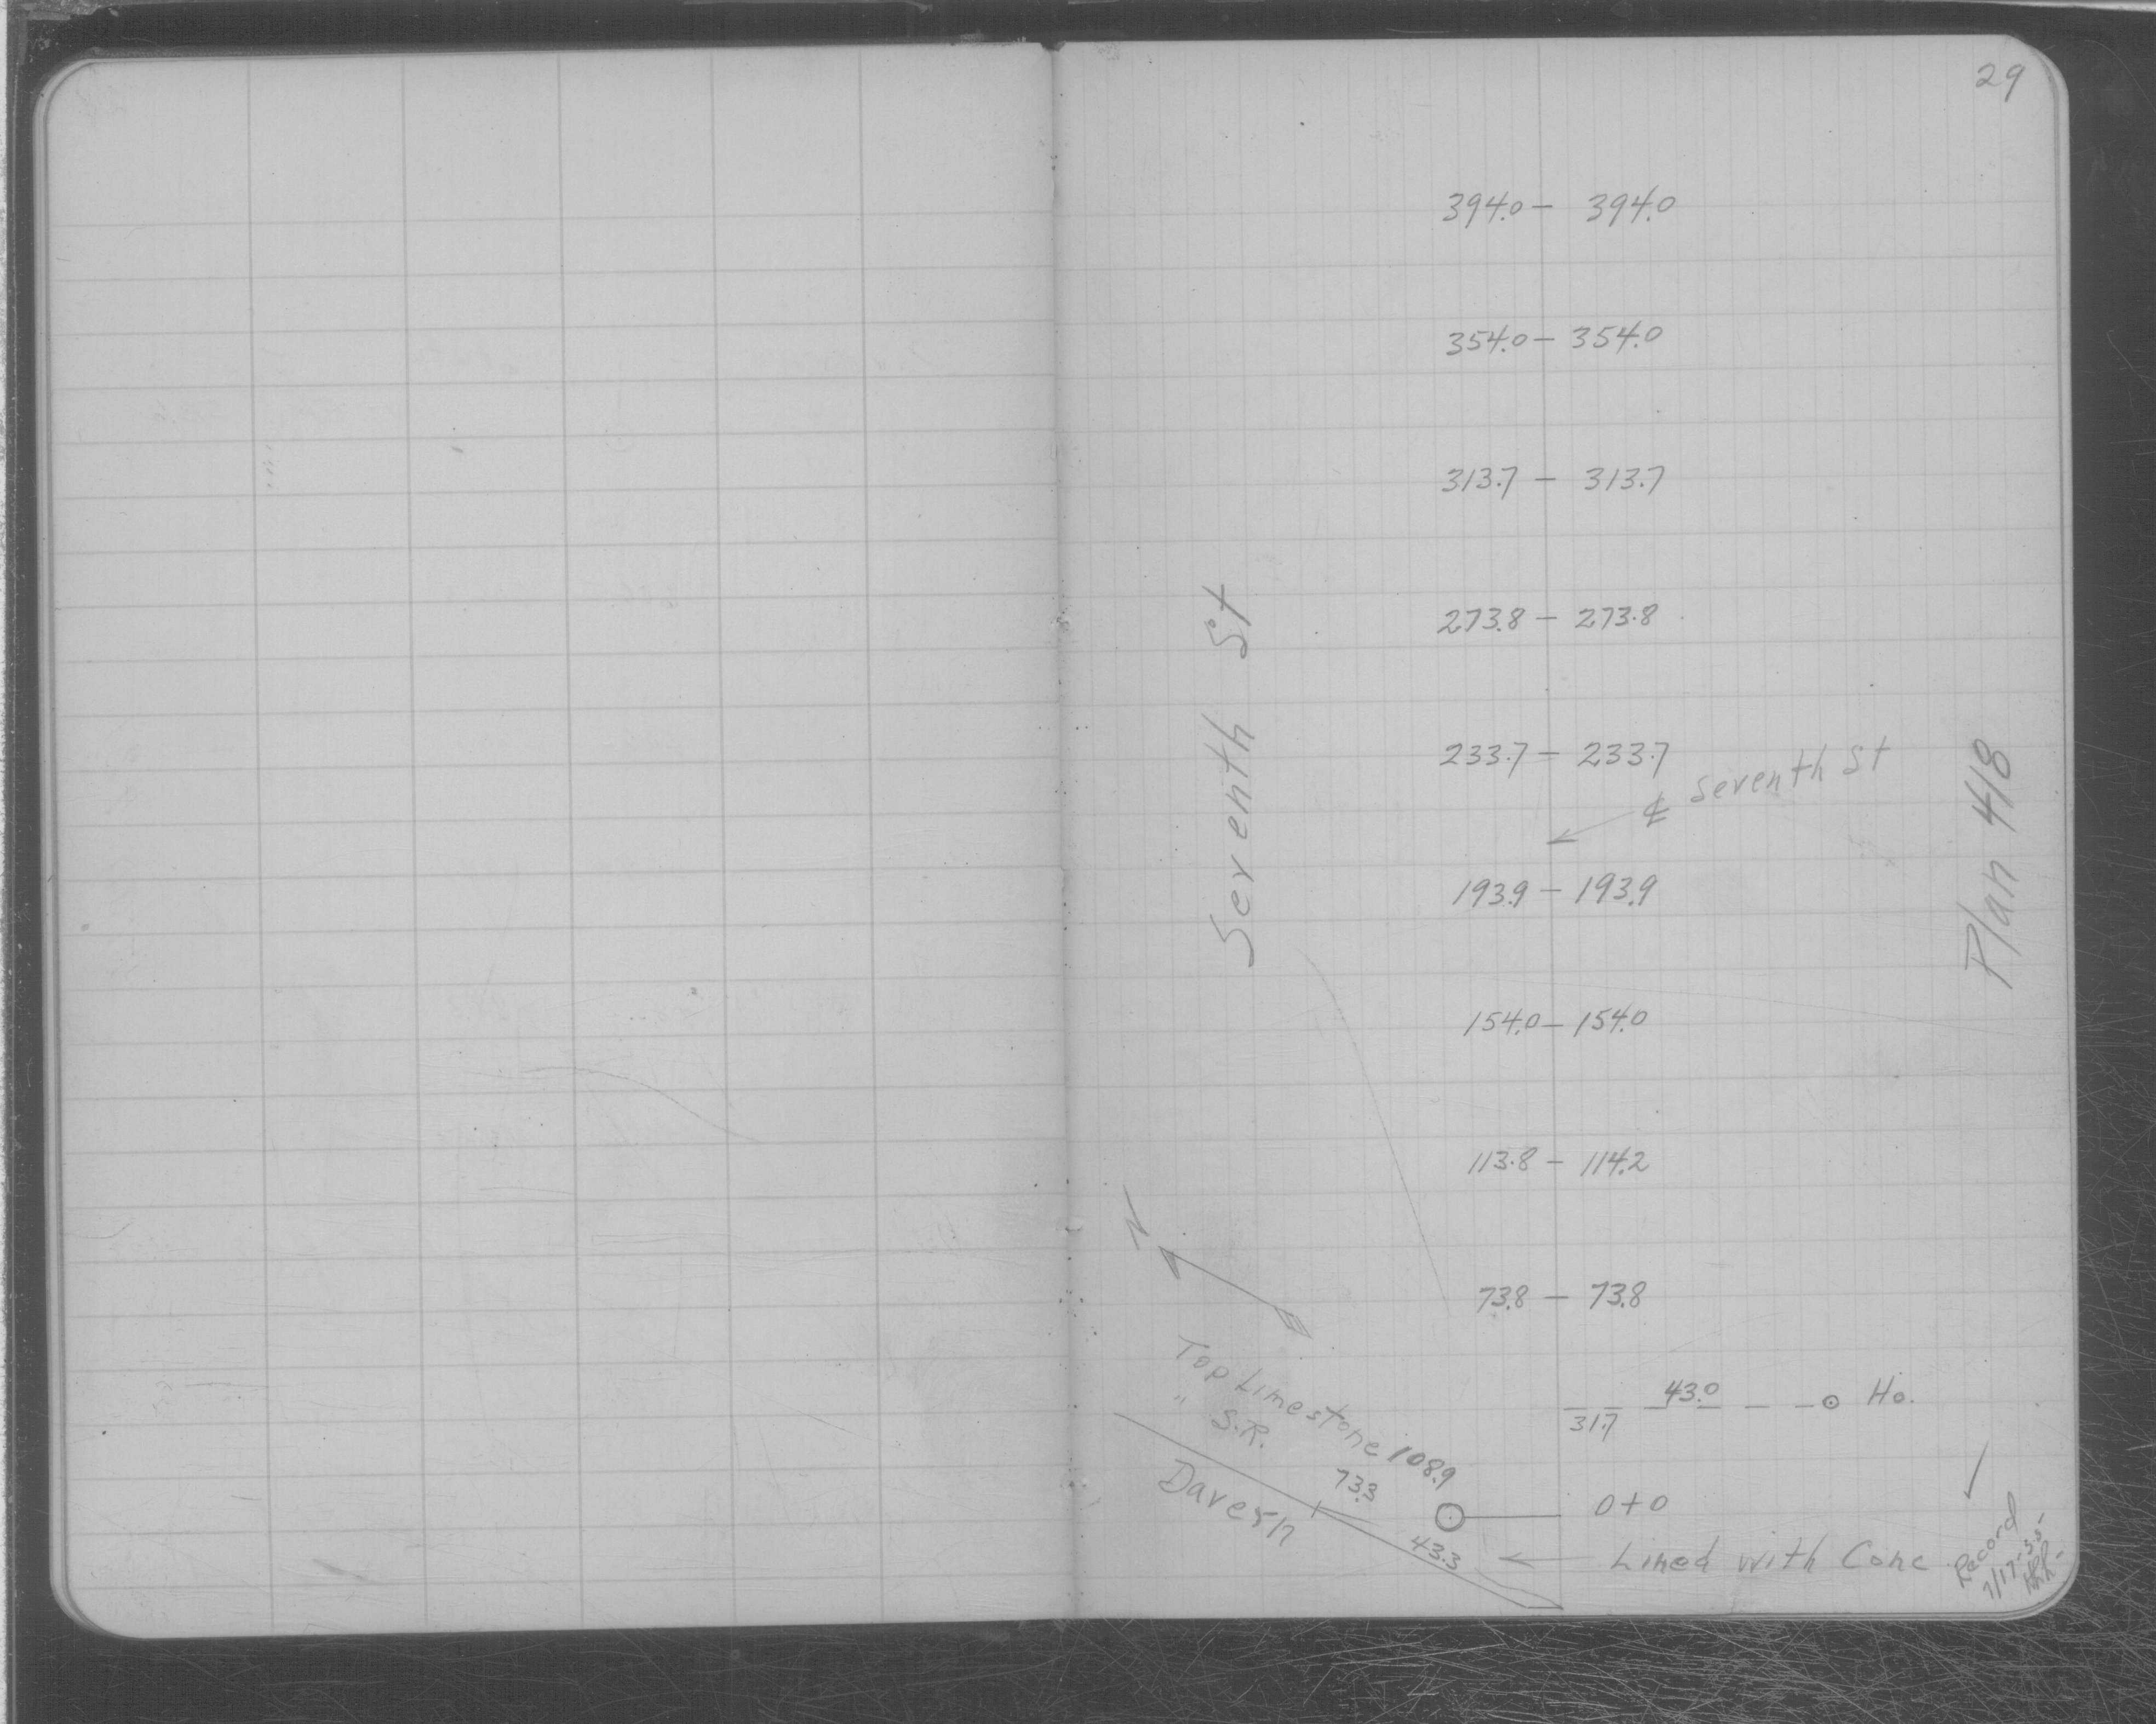 29
394.0 – 394.0
354.0 – 354.0
313.7 – 313.7
273.8 – 273.8
Seventh St
233.7 – 233.7
℄ Seventh St
Plan 418
193.9 – 193.9
154.0 – 154.0
113.8 – 114.2
N
73.8 – 73.8
43.0
31.7
Ho.
Top Limestone 108.9
" S.R. 73.3
Davern
0+0
43.3
Lined with Conc
Record
7/17-55-